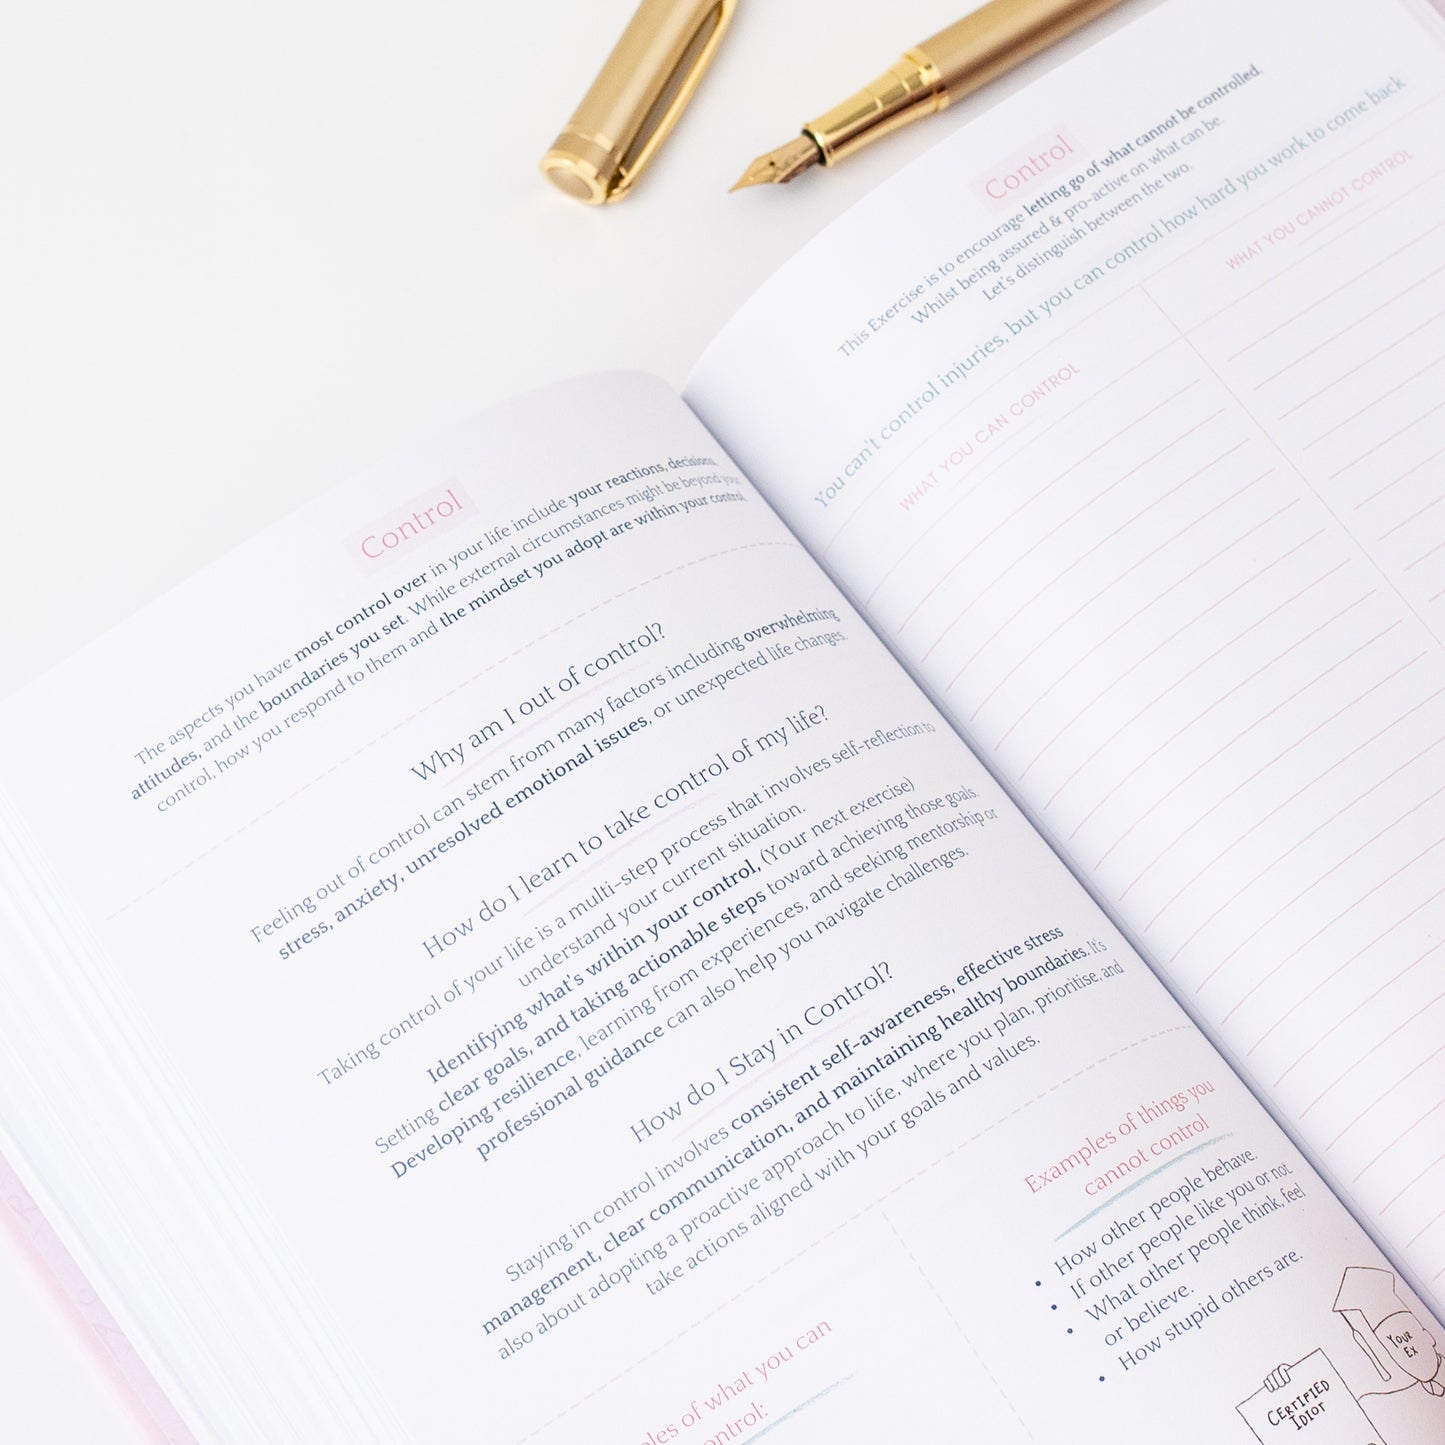 Control
The aspects you have most control over in your life include your reactions, decisions,
attitudes, and the boundaries you set. While external circumstances might be beyond your
control, how you respond to them and the mindset you adopt are within your control.
Why am I out of control?
Feeling out of control can stem from many factors including overwhelming
stress, anxiety, unresolved emotional issues, or unexpected life changes.
How do I learn to take control of my life?
Taking control of your life is a multi-step process that involves self-reflection to
understand your current situation.
Identifying what's within your control, (Your next exercise)
Setting clear goals, and taking actionable steps toward achieving those goals.
Developing resilience, learning from experiences, and seeking mentorship or
professional guidance can also help you navigate challenges.
How do I Stay in Control?
Staying in control involves consistent self-awareness, effective stress
management, clear communication, and maintaining healthy boundaries. It's
also about adopting a proactive approach to life, where you plan, prioritise, and
take actions aligned with your goals and values.
of what you can
Examples of things you
cannot control
• How other people behave.
• If other people like you or not
• What other people think, feel
or believe.
• How stupid others are.
CERTIFIED
IDIOT
YOUR
EX
Control
This Exercise is to encourage letting go of what cannot be controlled.
Whilst being assured & pro-active on what can be.
Let's distinguish between the two.
You can't control injuries, but you can control how hard you work to come back
WHAT YOU CAN CONTROL
WHAT YOU CANNOT CONTROL